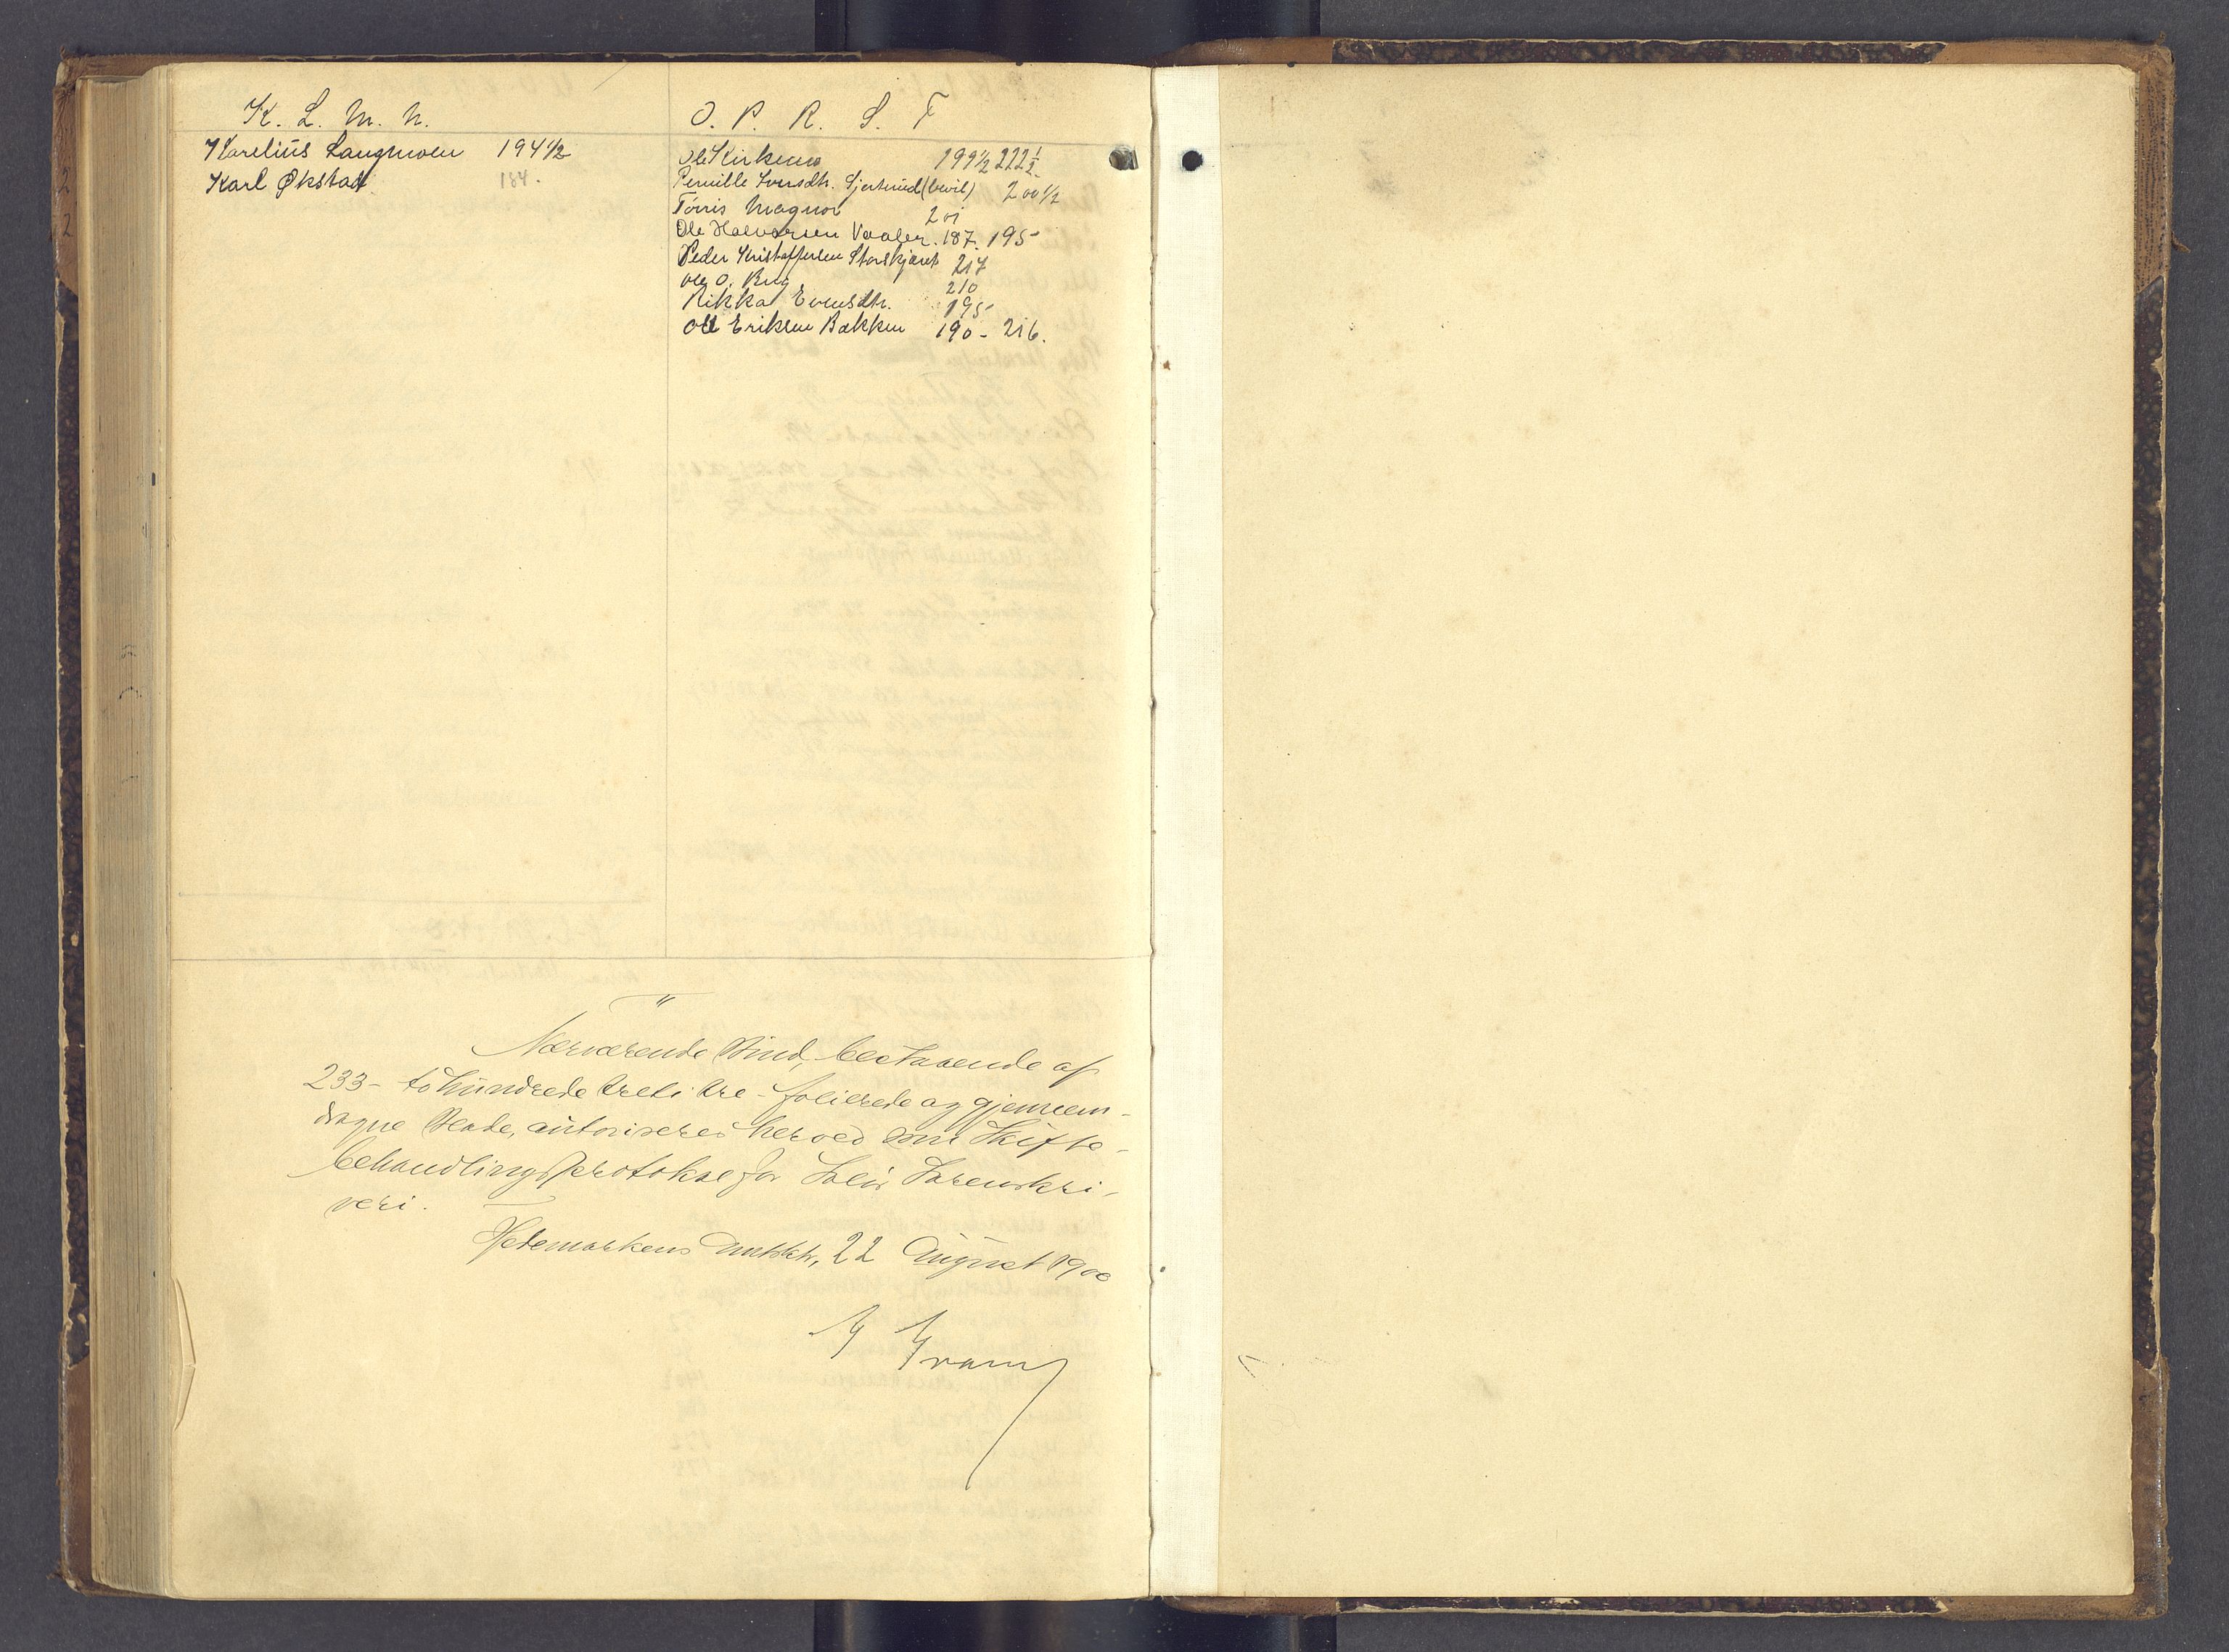 K. L. M. N.
Karelius Langmoen 194 1/2
Karl Økstad 184.
O. P. R. S. T
Ole Kirkemo 199 1/2 222 1/2
Pernille Iversdtr. Gjertrud (bevil) 200 1/2
Torris Magnor 201
Ole Halvorsen Vaaler. 187. 195
Peder Kristoffersen Storskjæret 217
Ole O. Berg 210
Rikka Evensdtr. 195
Ole Eriksen Bakken 190 - 216.
Nærværende Bind, bestaaende af
233 - tohundrede treti tre - folierede og gjennem-
dragne Blade, autoriseres herved som Skifte-
behandlingsprotokol for Solør Sorenskri-
veri.
Hedemarkens Amtsktr, 22 August 1900
G Gram